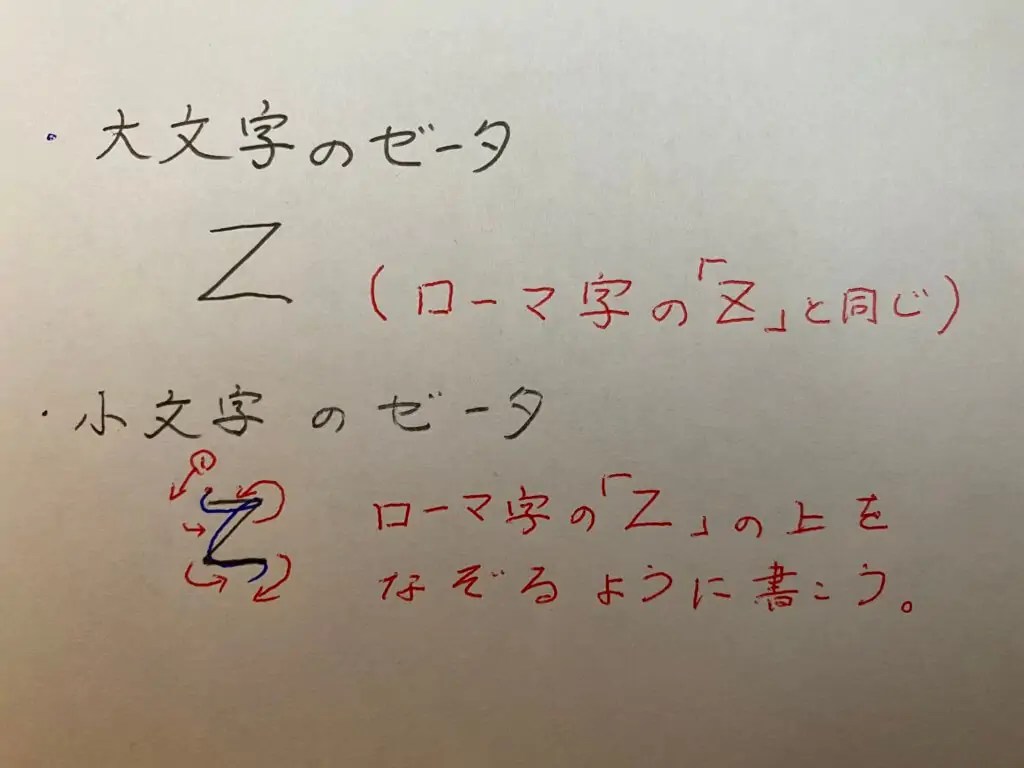 ・大文字のゼータ
Z (ローマ字の「Z」と同じ)
・小文字のゼータ
① ローマ字の「Z」の上を
なぞるように書こう。